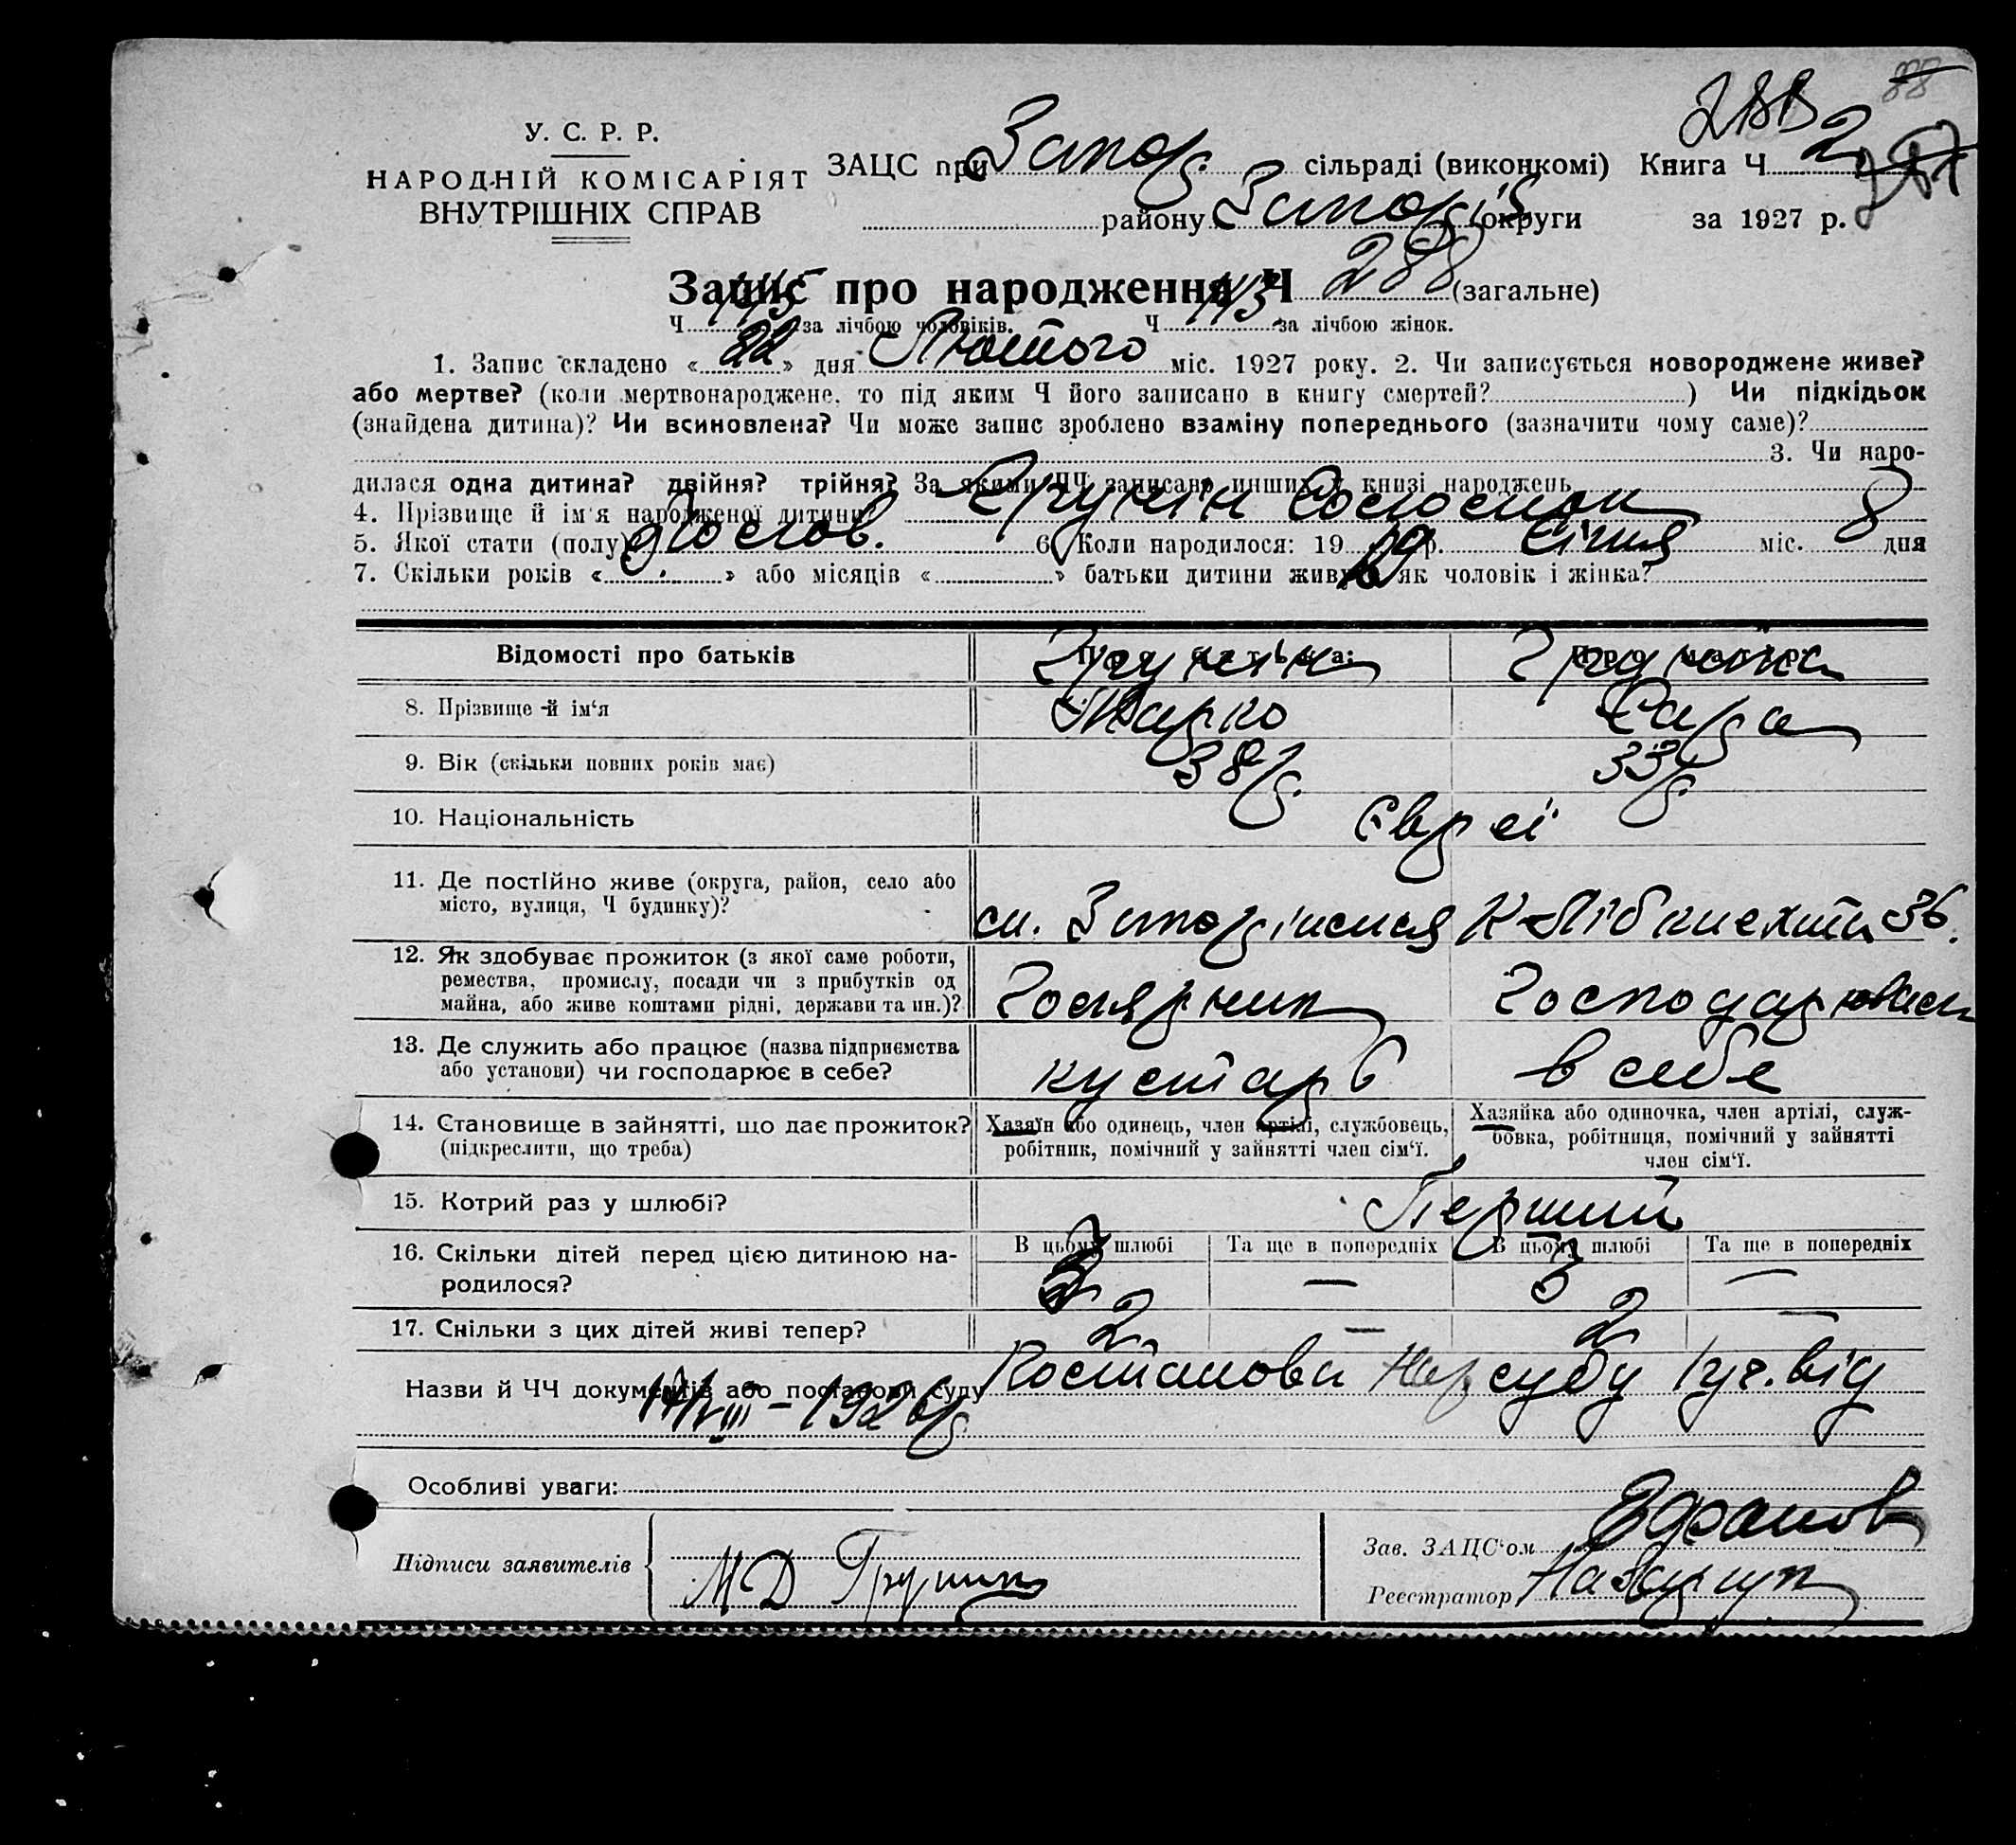 88
288
У. С. Р. Р.
НАРОДНІЙ КОМІСАРІЯТ
ВНУТРІШНІХ СПРАВ
ЗАЦС при Запор. сільраді (виконкомі) Книга Ч 2
району Запоріз округи за 1927 р.
Запис про народження Ч 288 (загальне)
Ч 145 за лічбою чоловіків. Ч 143 за лічбою жінок.
1. Запис складено « 22 » дня Лютого міс. 1927 року. 2. Чи записується новороджене живе?
або мертве? (коли мертвонароджене, то під яким Ч його записано в книгу смертей? ) Чи підкідьок
(знайдена дитина)? Чи всиновлена? Чи може запис зроблено взаміну попереднього (зазначити чому саме)?
3. Чи наро-
дилася одна дитина? двійня? трійня? За якими ЧЧ записано инших у книзі народжень
4. Прізвище й ім'я народженої дитини? Грунін Соломон
5. Якої стати (полу) чолов. 6. Коли народилося: 19 19 р. Січня міс. 8 дня
7. Скільки років « » або місяців « » батьки дитини живуть як чоловік і жінка?
Відомості про батьків
Про батька: Грунін
Про матір: Груніна
8. Прізвище й ім'я Марко Сара
9. Вік (скільки повних років має) 38 р. 33 р.
10. Національність Євреї
11. Де постійно живе (округа, район, село або
місто, вулиця, Ч будинку)? м. Запоріжжя К-Лібкнехта 36.
12. Як здобуває прожиток (з якої саме роботи,
ремества, промислу, посади чи з прибутків од
майна, або живе коштами рідні, держави та ин.)?
13. Де служить або працює (назва підприємства
або установи) чи господарює в себе? кустарь в себе
14. Становище в зайнятті, що дає прожиток?
(підкреслити, що треба)
Хазяїн або одинець, член артілі, службовець,
робітник, помічний у зайнятті член сім'ї.
Хазяйка або одиночка, член артілі, служ-
бовка, робітниця, помічний у зайнятті
член сім'ї.
15. Котрий раз у шлюбі? Перший
16. Скільки дітей перед цією дитиною на-
родилося?
В цьому шлюбі Та ще в попередніх В цьому шлюбі Та ще в попередніх
3 — 3 —
17. Скільки з цих дітей живі тепер? 2 — 2 —
Назви й ЧЧ документів або постанови суду Постанова Нар суду 1 уч. від
1926 р.
Особливі уваги:
Підписи заявителів МД Грунин
Зав. ЗАЦС'ом
Реєстратор